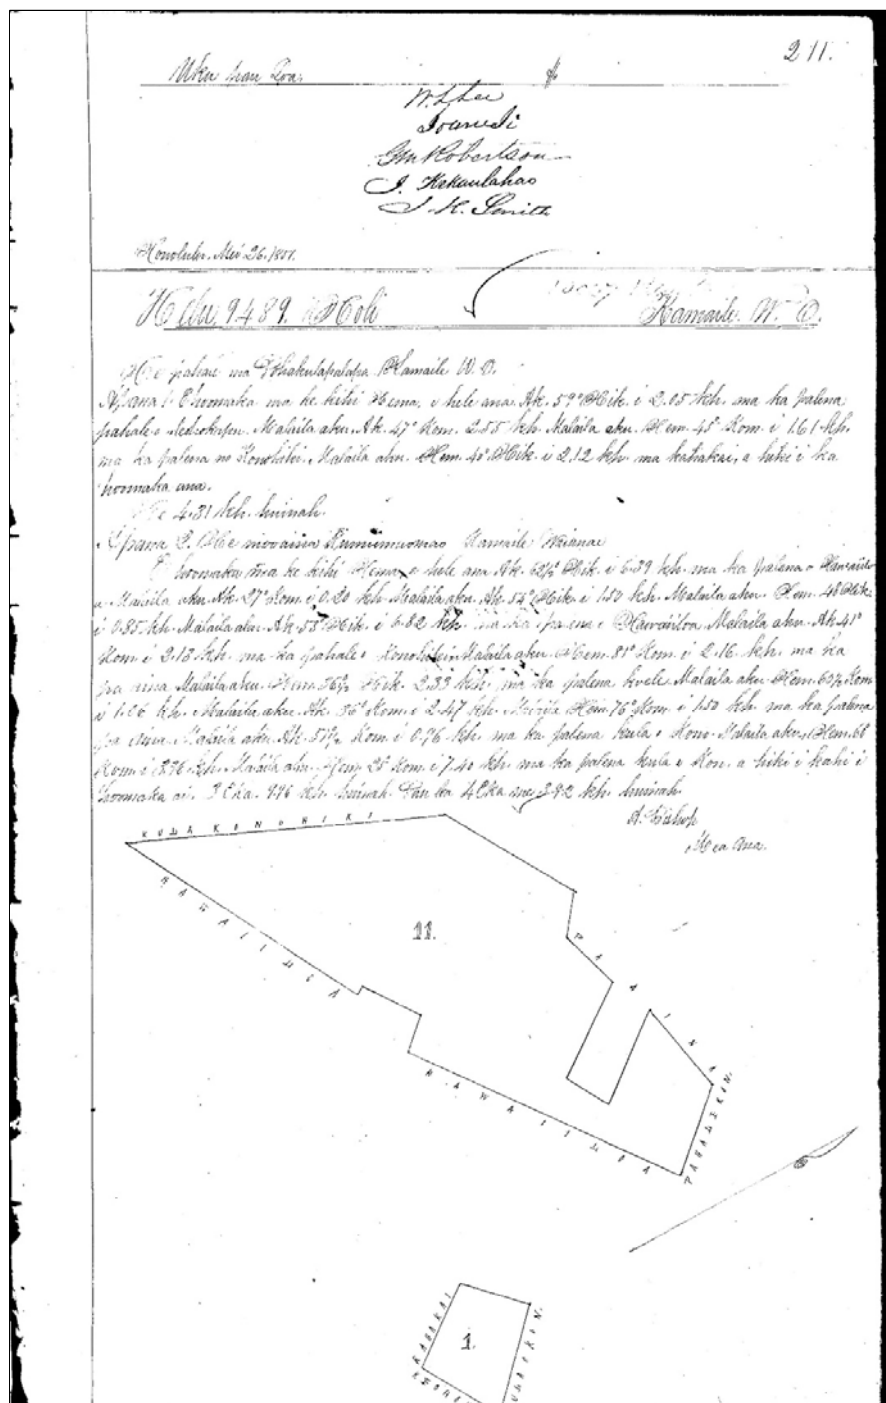 211.
Uku pau Loa.
W. L. Lee
Ioane Ii
G M Robertson
J. Kekaulahao
J. H. Smith
Honolulu. Mei 26. 1851.
Helu 9489. Holi Kamaile. W. O.
He pahale ma Kamaile W. O.
Apana 1. E hoomaka ma ke kihi Hema, e hele ana Ak. 59° Hik. i 2.05 kh. ma ka palena
pahale o Malaila aku. Ak. 47° Kom. 2.55 kh. Malaila aku. Hem. 45° Kom. i 1.61 kh.
ma ka palena no Konohiki. Malaila aku. Hem. 40° Hik. i 2.12 kh. ma kahakai, a hiki i ka
hoomaka ana.
4.31 kh. kuinah.
Apana 2. He mooaina Kamaile Waianae
E hoomaka ma ke kihi Hema, e hele ana Ak. 62½° Hik. i 6.39 kh. ma ka palena o Hawaiiloa
Malaila aku. Ak. 27° Kom. i 0.20 kh. Malaila aku. Ak. 54° Hik. i 1.50 kh. Malaila aku. Hem. 48 Hik.
i 0.85 kh. Malaila aku. Ak. 53° Hik. i 6.82 kh. ma ka palena o Hawaiiloa Malaila aku. Ak. 41°
Kom. i 2.13 kh. ma ka pahale o Konohiki Malaila aku. Hem. 81° Kom. i 2.16. kh. ma ka
pa aina Malaila aku. Hem. Hik. 2.33 kh. ma ka palena Malaila aku. Hem. Kom
i 1.06 kh. Malaila aku. Ak. 36° Kom. i 2.47 kh. Malaila Hem. 76° Kom. i 1.50 kh. ma ka palena
pa aina. Malaila aku. Ak. Kom. i 0.76 kh. ma ka palena kula o Kono. Malaila aku. Hem. 68
Kom. i 3.76 kh. Malaila aku. Hem. 25° Kom. i 7.40 kh. ma ka palena kula o Kon. a hiki i kahi i
hoomaka ai. 3 Eka. 9.96 kh. kuinah. Pau ka 4 Eka me 3.92 kh. kuinah.
A. Bishop
Mea Ana.
KULA KONOHIKI
HAWAIILOA
11.
PA AINA
HAWAIILOA
PAHALE KON.
KAHAKAI
1.